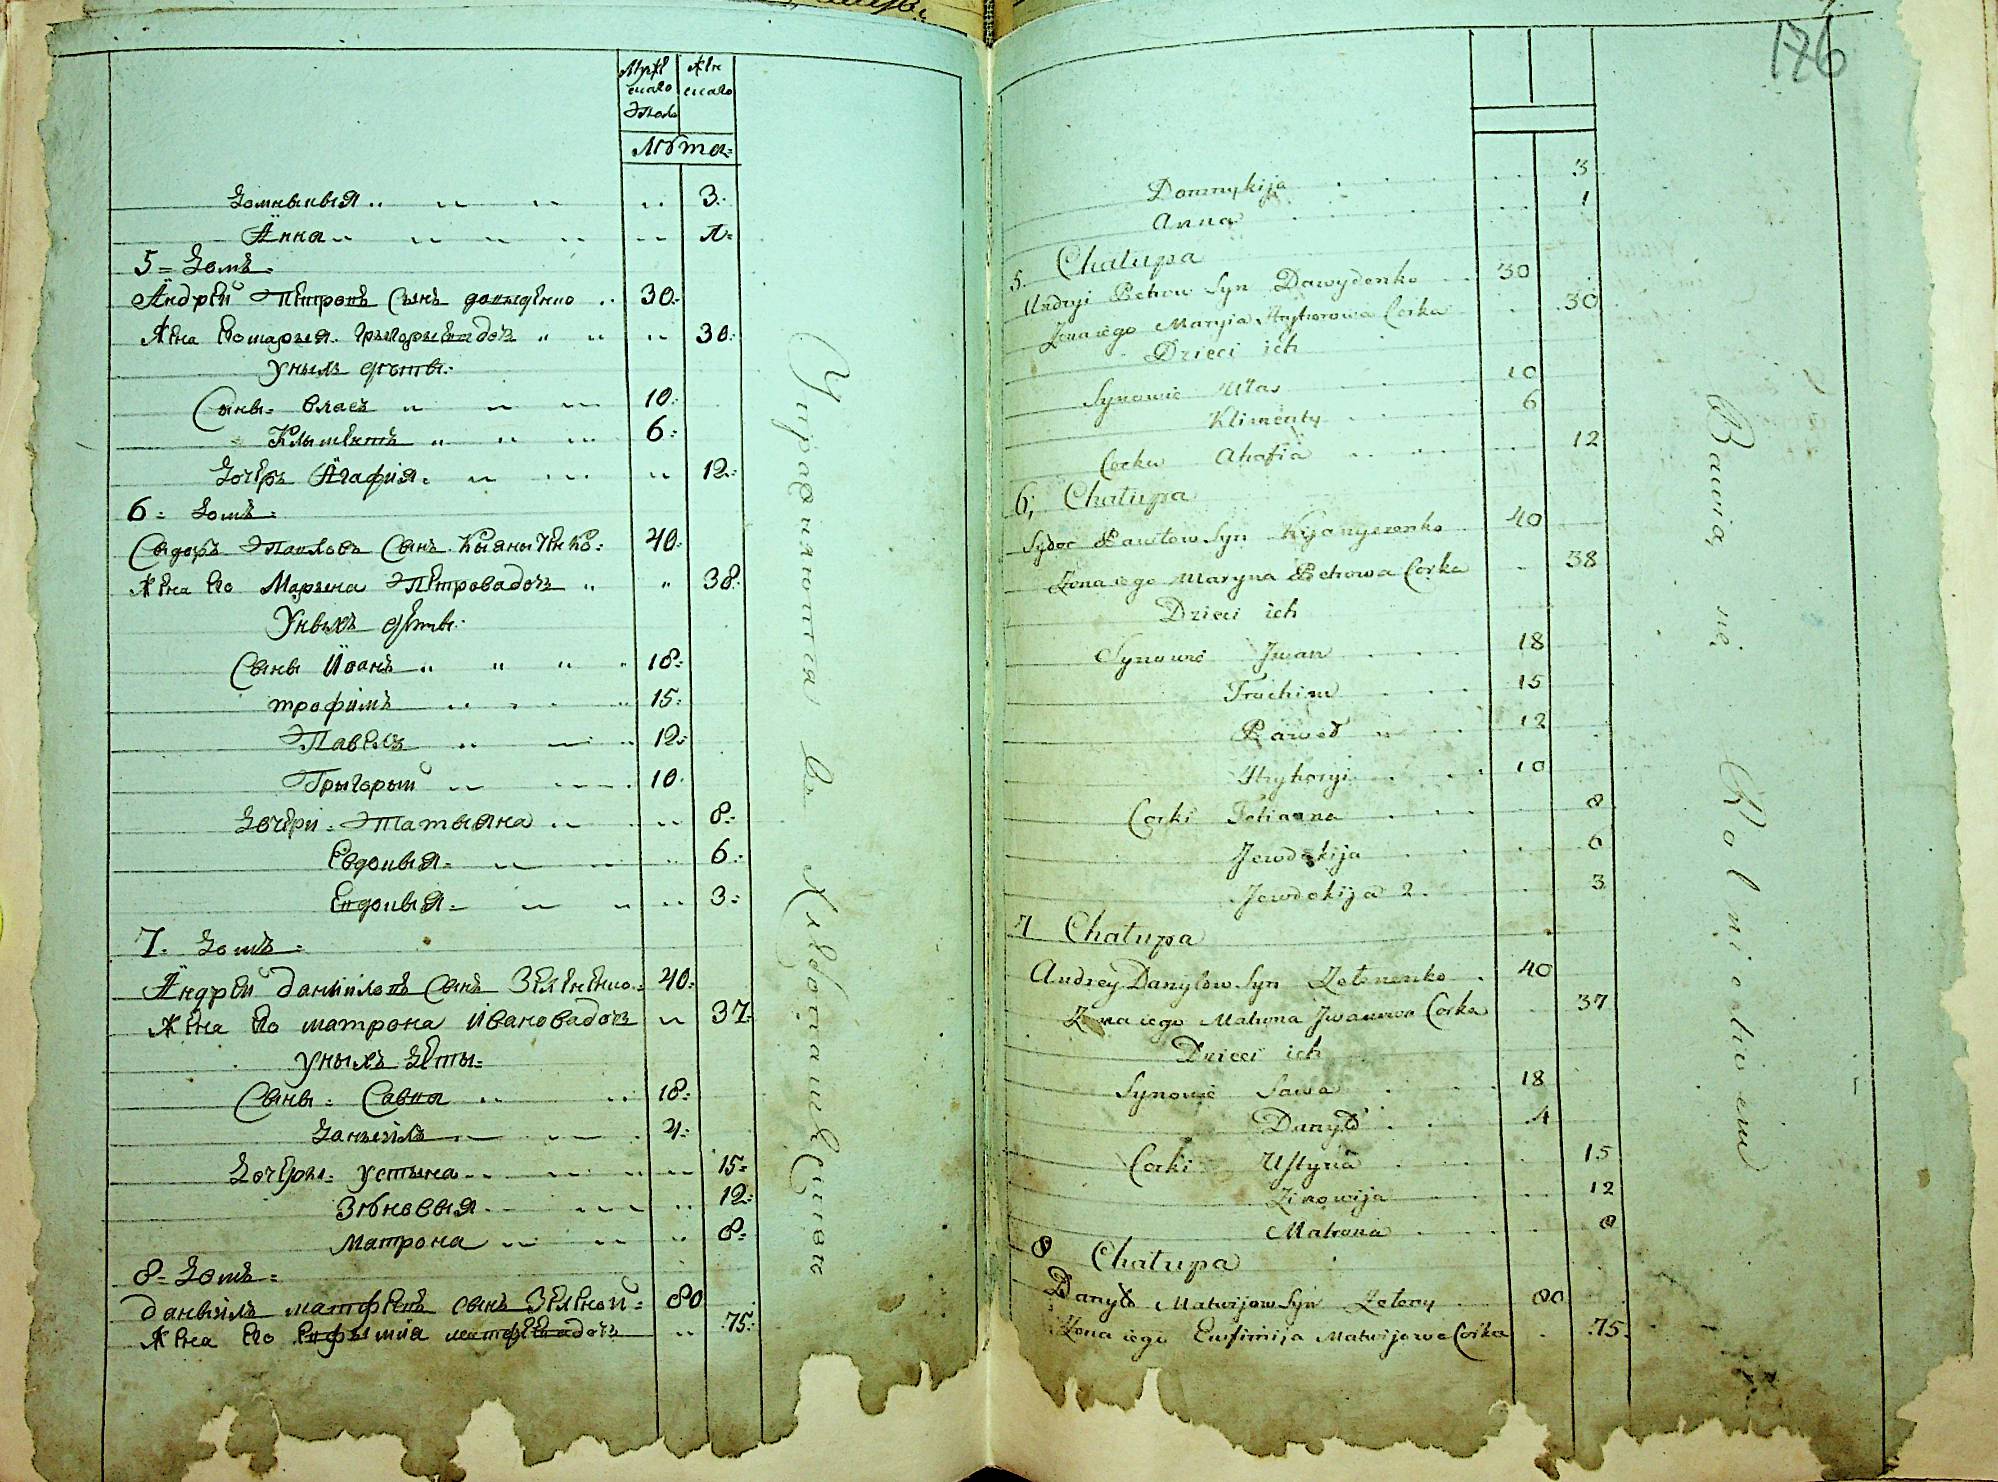 Мужескаго Женскаго
Полъ
Лѣта
Домныкия 3
Анна 1
5 Домъ
Андрей Петровъ сынъ Давыденко 30
Жена его марыя Грыгорьевадочъ 30
Уныхъ дѣты
Сыны Власъ 10
Клыментъ 6
Дочерь Агафия 12
6 Домъ
Сыдоръ Павловъ Сынъ Кыяныченко 40
Жена Его Марына Петровадочъ 38
Уныхъ дѣты
Сыны Иванъ 18
трофимъ 15
Павелъ 12
Грыгорый 10
Дочери Татыяна 8
Евдокыя 6
Евдокыя 3
7 Домъ
Андрей данииловъ Сынъ Зелененко 40
Жена Его матрона Ивановадочъ 37
уныхъ Дѣты
Сыны Савка 18
Даныилъ 4
Дочеры Устына 15
Зѣновыя 12
Матрона 8
8 Домъ
даныилъ матфеевъ сынъ Зеленой 80
Жена Его Евфымия матфеевадочъ 75
Упражняются въ Хлебопашествѣ
176
Domnykija 3
Anna 1
5 Chałupa
Andryi Petrow Syn Dawydenko 30
Zona iego Maryia Hryhorowa Corka 30
Dzieci ich
Synowie Ułas 10
Klimenty 6
Corka Ahafia 12
6 Chałupa
Sydor Pawłow Syn Kyjanyczenko 40
Zona iego Maryna Petrowa Corka 38
Dzieci ich
Synowie Jwan 18
Trochim 15
Paweł 12
Hryhoryi 10
Corki Tetianna 8
Jewdokija 6
Jewdokija 2 3
7 Chałupa
Andrey Danyłow Syn Zełenenko 40
Zona iego Matrona Jwanowa Corka 37
Dzieci ich
Synowie Sawa 18
Danyło 4
Corki Ustyna 15
Zinowija 12
Matrona 8
8 Chałupa
Danyło Matwijow Syn Zełeny 80
Zona iego Eufimija Matwijowa Corka 75
Bawią się Rolnictwem